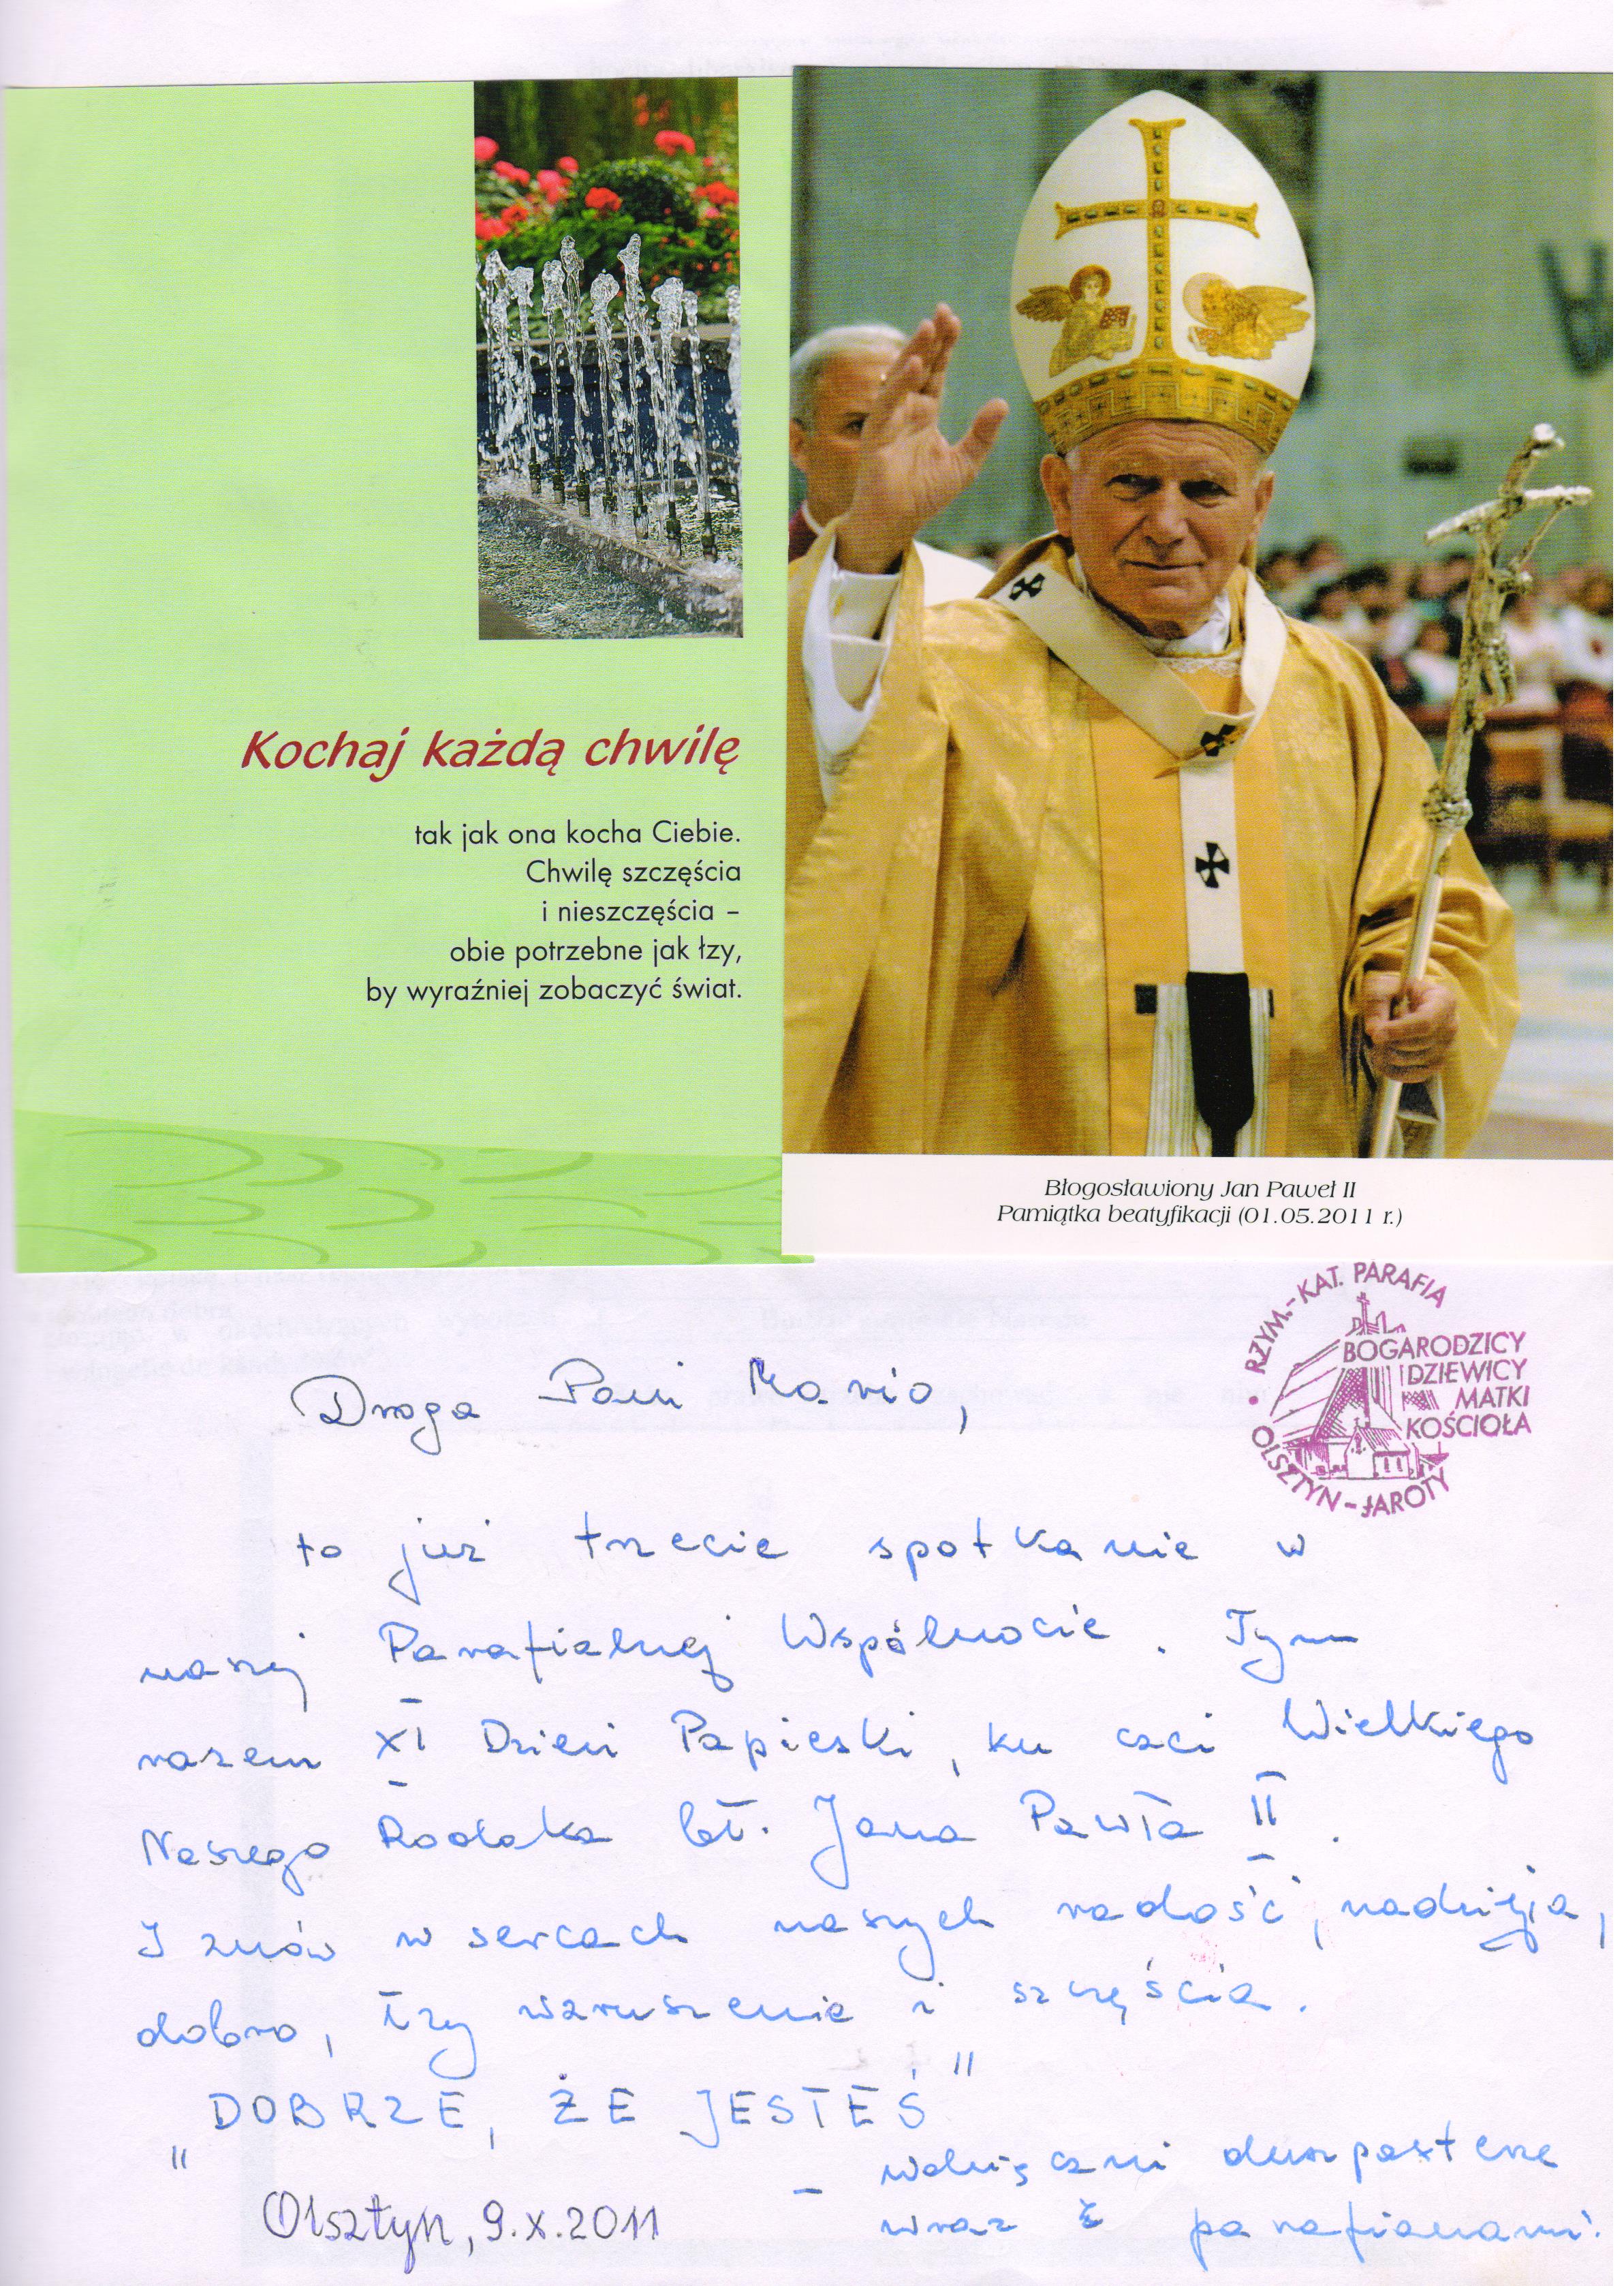 Kochaj każdą chwilę
tak jak ona kocha Ciebie.
Chwilę szczęścia
i nieszczęścia –
obie potrzebne jak łzy,
by wyraźniej zobaczyć świat.
Błogosławiony Jan Paweł II
Pamiątka beatyfikacji (01.05.2011 r.)
RZYM.-KAT. PARAFIA
BOGARODZICY
DZIEWICY
MATKI
KOŚCIOŁA
OLSZTYN-JAROTY
Droga Pani Mario,
to już trzecie spotkanie w
naszej Parafialnej Wspólnocie. Tym
razem XI Dzień Papieski, ku czci Wielkiego
Naszego Rodaka bł. Jana Pawła II.
I znów w sercach naszych radość, nadzieja,
dobro, łzy wzruszenie i szczęścia.
"DOBRZE, ŻE JESTEŚ"
– wdzięczni duszpasterze
wraz z parafianami.
Olsztyn, 9.X.2011